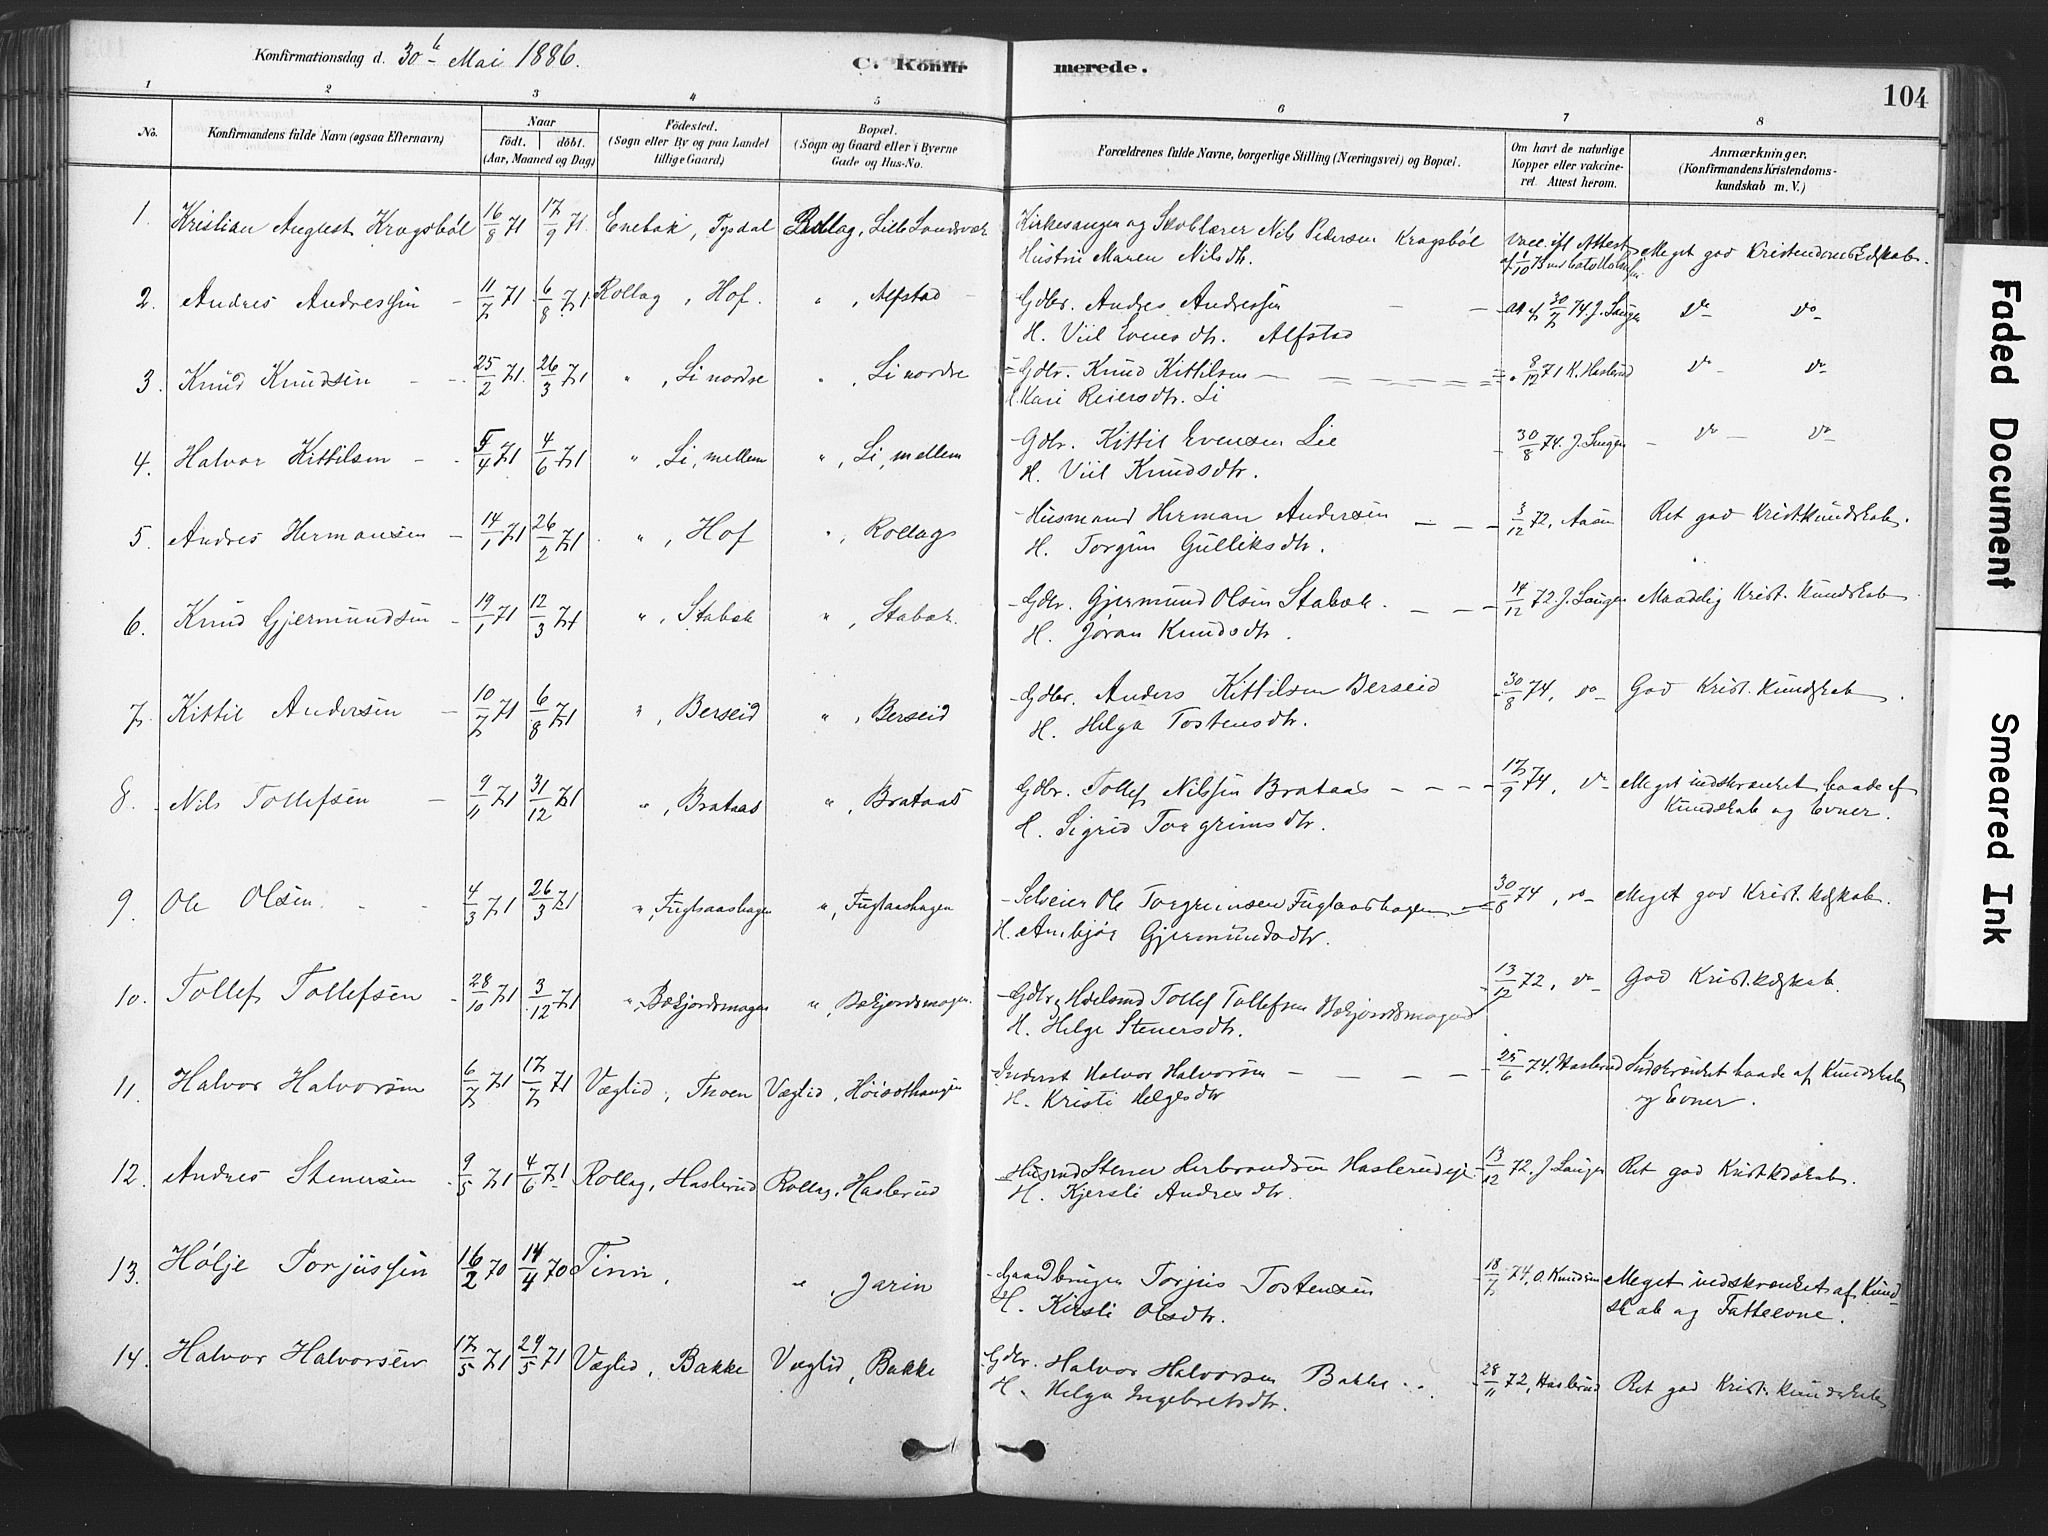 Konfirmationsdag d. 30te Mai 1886.
C. Konfirmerede.
104
1 2 3 4 5 6 7 8
No.
Konfirmandens fulde Navn (ogsaa Efternavn)
Naar
födt. döbt.
(Aar, Maaned og Dag)
Födested.
(Sogn eller By og paa Landet
tillige Gaard)
Bopæl.
(Sogn og Gaard eller i Byerne
Gade og Hus-No.
Forældrenes fulde Navne, borgerlige Stilling (Næringsvei) og Bopæl.
Om havt de naturlige
Kopper eller vakcine-
ret. Attest herom.
Anmærkninger.
(Konfirmandens Kristendoms-
kundskab m. V.)
1. Kristian August Kragsböl 16/8 71 17/9 71. Enebak, Tysdal Rollag, Lille Landsværk Kirkesanger og Skolelærer Nils Pedersen Kragsböl Vacc. ifl. Attest Meget god Kristendomskdskab.
Hustru Maren Nilsdtr.
2. Andres Andressen - 11/7 71 6/8 71 Rollag, Hof. " , Alfstad - Gdbr. Andres Andressen - - At. af 30/7 74. J. Laugen do - do -
H. Viil Evensdtr. Alfstad
3. Knud Knudsen - - 25/2 71. 26/3 71 " , Li nordre " , Li nordre - Gdbr. Knud Kittilsen - - - 8/12 71 K. Haslerud do - do -
H. Kari Reiersdtr. Li
4. Halvor Kittilsen - - 5/4 71 4/6 71 " , Li, mellem " , Li, mellem - Gdbr. Kittil Evensen Lie - 30/8 74. J. Laugen - do - do -
H. Viil Knudsdtr.
5. Andres Hermansen - 14/1 71 26/2 71 " , Hof " , Rollags - Husmand Herman Andersen - - - 3/12 72, Aasen Ret god Krist. kundskab.
H. Torgun Gulliksdtr.
6. Knud Gjermundsen - 19/1 71 12/3 71 " , Stabæk " , Stabæk. - Gdbr. Gjermund Olsen Stabæk. - - - 14/12 72. J. Laugen Maadelig Krist. kundskab.
H. Jöran Knudsdtr.
7. Kittil Andersen - 10/7 71 6/8 71 " , Berseid " , Berseid - Gdbr. Anders Kittilsen Berseid - 30/8 74, do - God Krist. kundskab.
H. Helga Tostensdtr.
8. Nils Tollefsen - 9/11 71 31/12 71 " , Brataas " , Brataas - Gdbr. Tollef Nilssen Brataas - - - 17/9 74, do - Meget indskrænket baade af
Kundskab og Evner.
H. Sigrid Torgrimsdtr.
9. Ole Olsen. - - 4/3 71 26/3 71 " , Fuglaashagen " , Fuglaashagen - Selveier Ole Torgrimsen Fuglaashagen - 30/8 74, do - Meget god Krist. kdskab.
H. Anbjör Gjermundsdtr.
10. Tollef Tollefsen - 28/10 71 3/12 71 " , Bækjordsmogen " , Bækjordsmogen. - Gdbr. Tollef Tollefsen Bækjordsmogen - 13/12 72, do - God Krist. kdskab.
H. Helge Stenersdtr.
11. Halvor Halvorsen 6/7 71 17/7 71 Væglid, Thoen Væglid, - Inderst Halvor Halvorsen - - - - 25/6 74. Haslerud Indskrænket baade af Kundskab
og Evner.
H. Kristi Helgesdtr
12. Andres Stenersen - 9/5 71 4/6 71 Rollag, Haslerud Rollag, Haslerud - Husmd Stener Herbrandsen Haslerudeje - 13/12 72. J. Laugen Ret god Krist. kdskab.
H. Kjersti Andresdtr.
13. Hölje Torjussen 16/2 70 14/4 70 Tinn. " , Jarin - Gaardbruger Torjus Tostensen - 18/7 74, O. Knudsen Meget indskrænket af Kund-
skab og Fatteevne.
H. Kirsti Olsdtr.
14. Halvor Halvorsen 17/5 71 29/5 71 Væglid, Bakke Væglid, Bakke Gdbr. Halvor Halvorsen Bakke - 28/11 72, Haslerud Ret god Krist. kundskab
H. Helga Ingebretsdtr.
Faded Document
Smeared Ink